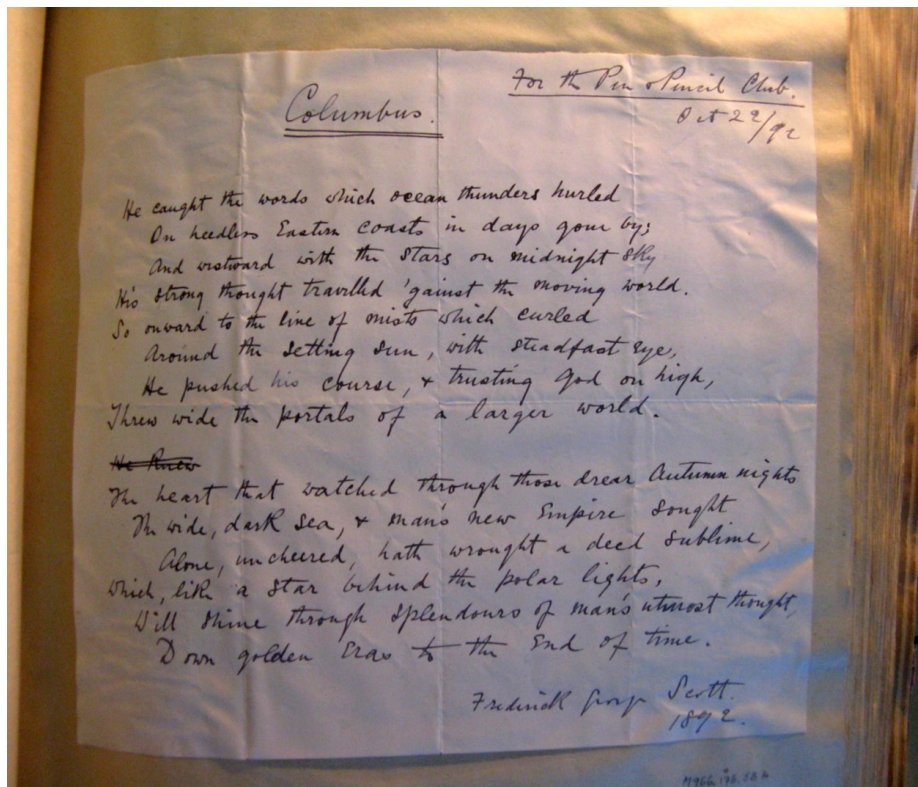 For the Pen & Pencil Club.
Columbus.
Oct 29/92
He caught the words which ocean thunders hurled
On heedless Eastern coasts in days gone by;
And westward with the stars on midnight sky
His strong thought travelled 'gainst the moving world.
So onward to the line of mists which curled
Around the setting sun, with steadfast eye,
He pushed his course, & trusting God on high,
Threw wide the portals of a larger world.
He knew
The heart that watched through those drear Autumn nights
The wide, dark sea, & man's new Empire sought
Alone, uncheered, hath wrought a deed sublime,
Which, like a star behind the polar lights,
Will shine through splendours of man's utmost thought,
Down golden Eras to the End of time.
Frederick George Scott.
1892.